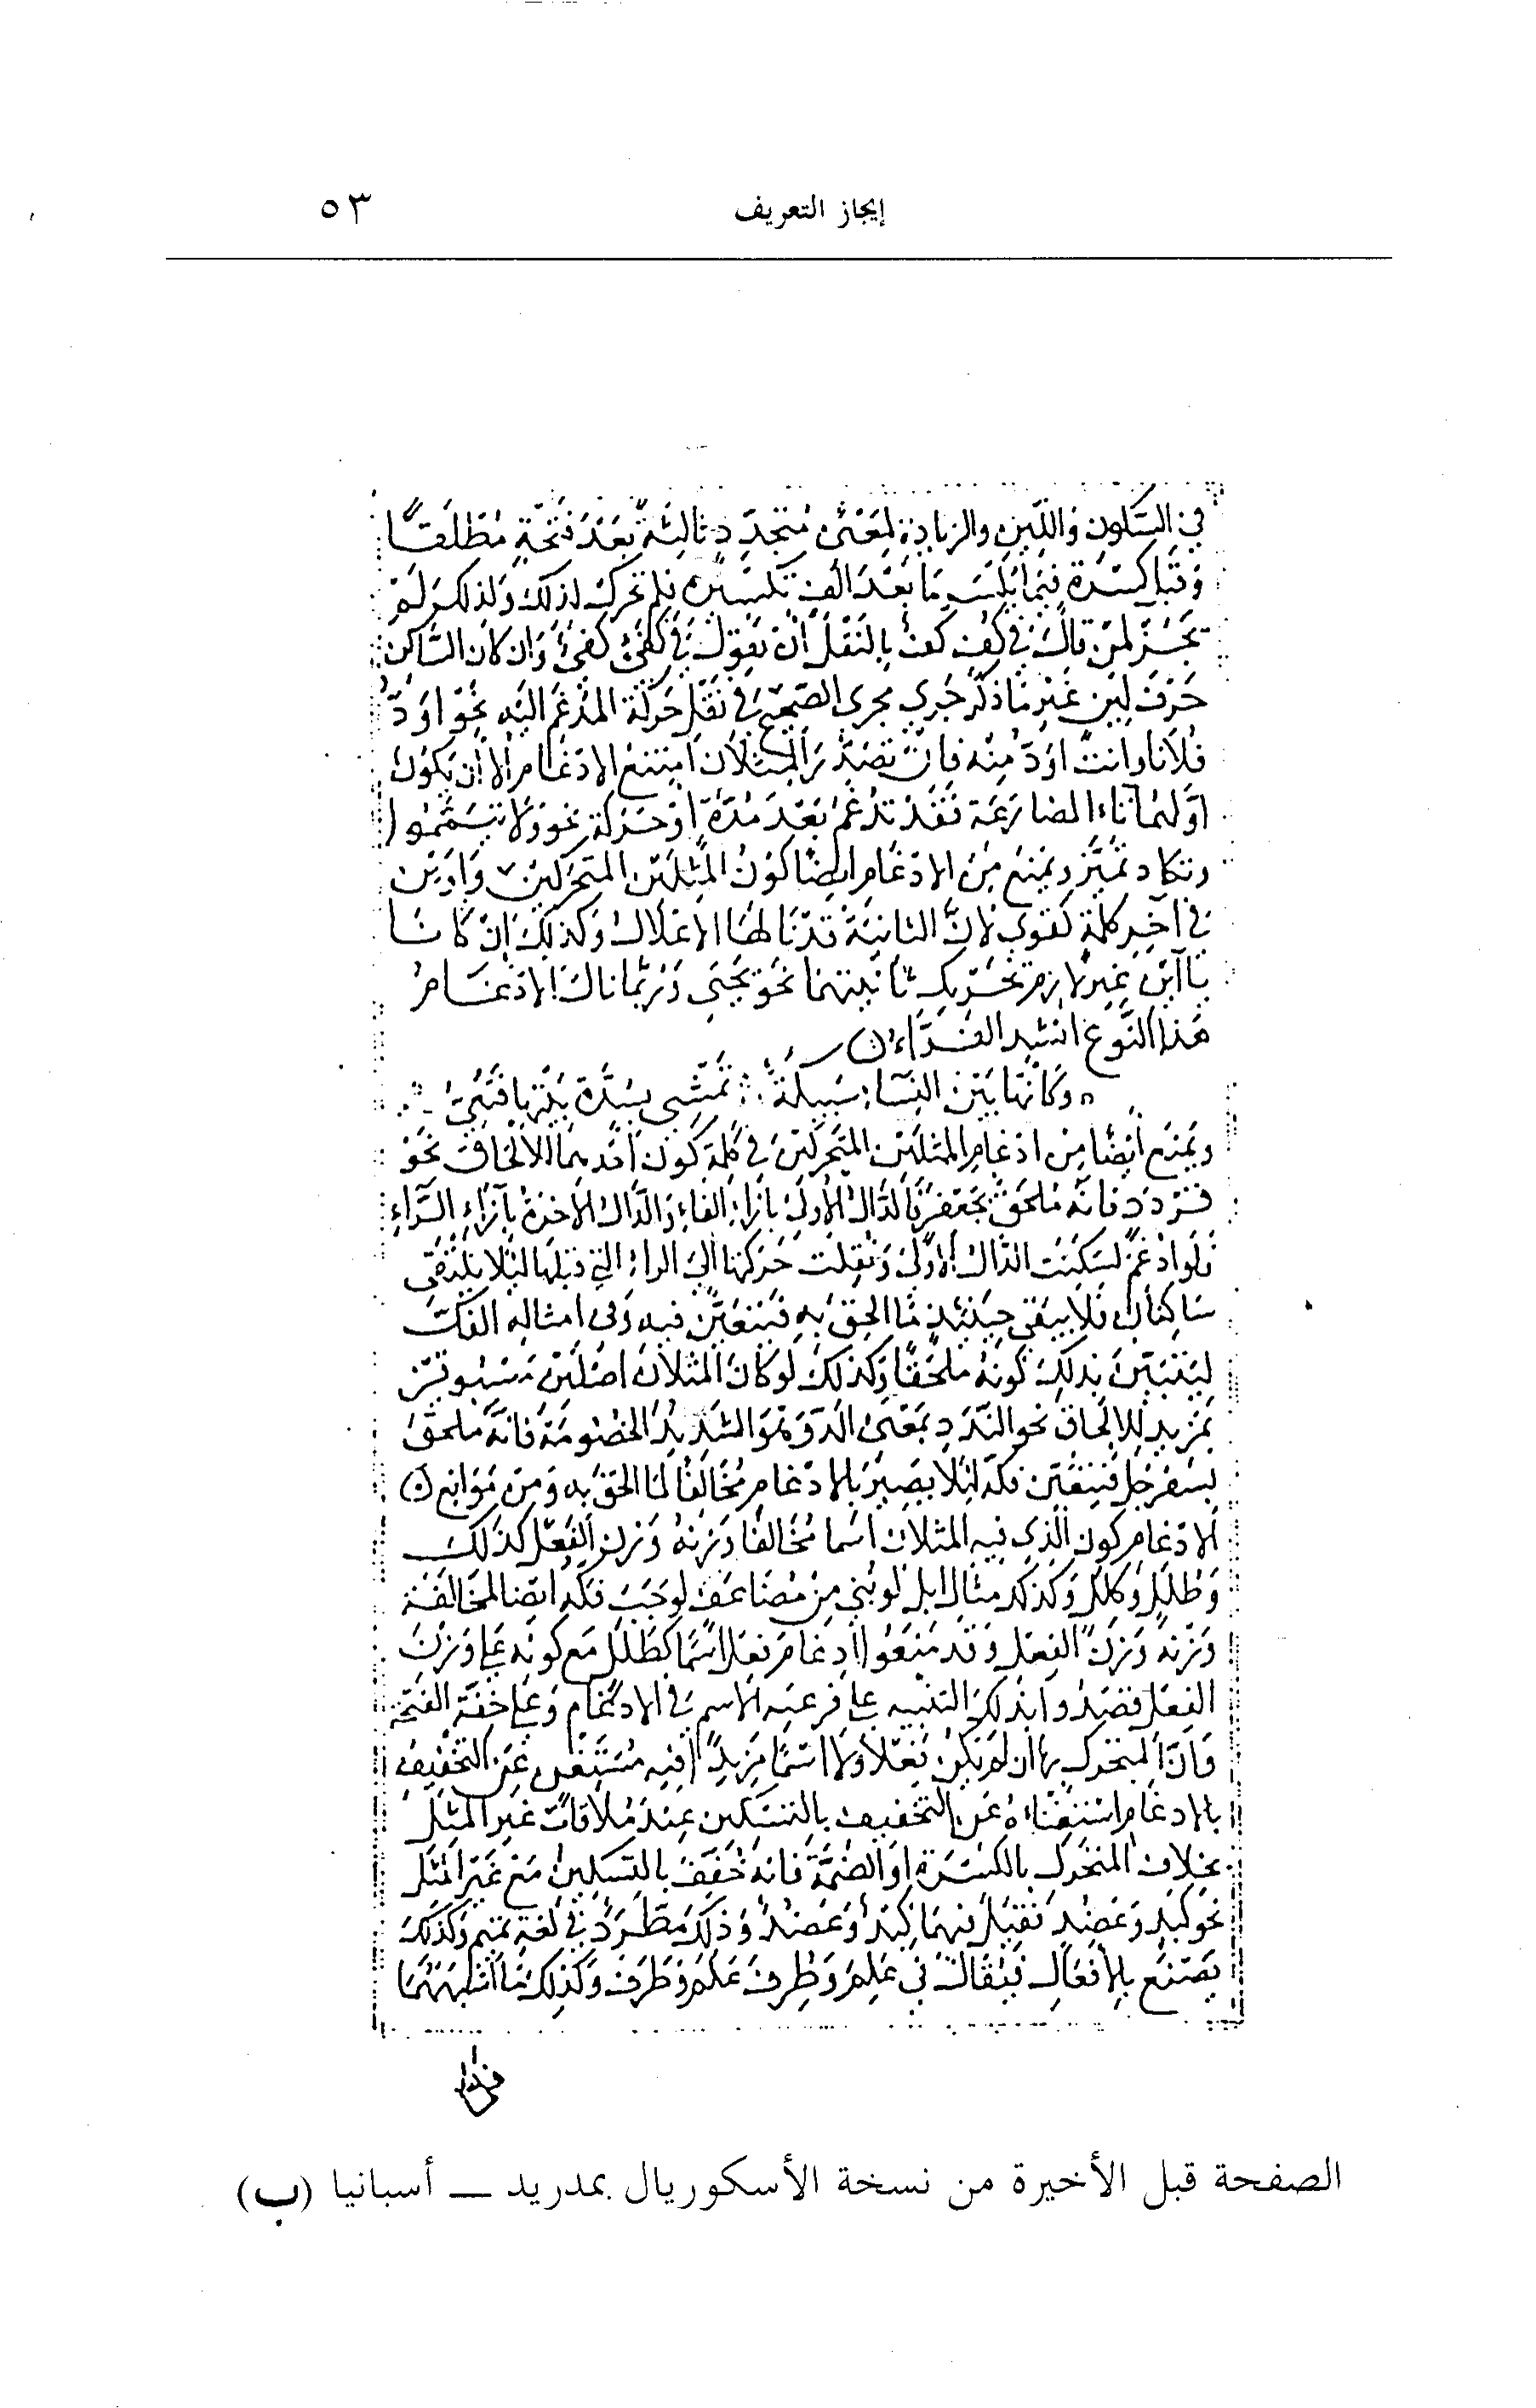 إيجاز التعريف
٥٣
في السكون واللين والزيادة لمعنى متجدد ثالثة بعد فتحة مطلقًا
وقبل كسرة فيما يكسر ما بعد الف تكسيره فلم تحرك لذلك ولذلك لم
يجز لمن قال في كف كف بالنقل أن يقول في وان كان الساكن
حرف لين غير ما ذكر جرى مجرى الصحيح في نقل حركة المدغم اليه نحو اودّ
فلانا وانت اودّ منه فان تصدّر المثلان امتنع الادغام الا أن يكون
اولهما تاء المضارعة فقد تدغم بعد مدّة او حركة نحو ولا تيمموا
وتكاد تميز ويمنع من الادغام ايضا كون المثلين المتحركين واوين
في آخر كلمة كقوى لانّ الثانية قد نالها الاعلال وكذلك إن كانا
ياآين غير لازم تحريك ثانيتهما نحو يحيى وربما نال الادغام
هذا النوع انشد الفرّاء
وكأنها بين النساء سبيكة تمشى بسدّة بيتها فتعيّ
ويمنع أيضا من ادغام المثلين المتحركين في كلمة كون أحدهما للالحاق نحو
قردد فانه ملحق بجعفر فالدال الأولى بازاء الفاء والدال الاخرة بآزاء الرّاء
فلو ادغم لسكنت الدال الأولى ونقلت حركتها إلى الراء التي قبلها لئلا يلتقى
ساكنان فلا يبقى حينئذ ما الحق به فيتعيّن فيه وفى امثاله الفك
ليتبين بذلك كونه ملحقًا وكذلك لو كان المثلان اصلين مسبوقين
بمزيد للالحاق نحو النَّدد بمعنى الدّ وهو الشديد الخصومة فانّه ملحق
بسفرجل فيتعين فكّه لئلا يصير بالادغام مخالفًا لما الحق به ومن موانع
الادغام كون الذي فيه المثلان اسما مخالفا وزنه وزن الفعل كذلك
وظلل وكلل وكذلك مثال ابل لو بُني من مضاعف لوجب فكه ايضا لمخالفة
وزنه وزن الفعل وقد منعوا ادغام فعل اسمًا كطلل مع كونه على وزن
الفعل فقصدوا بذلك التنبيه على فرعية الاسم في الادغام وعلى خفّة الفتحة
وانّ المتحرك بها ان لم يكن فعلاً ولا اسمًا مزيدًا فيه مستغن عن التخفيف
بالادغام استغناءه عن التخفيف بالتسكين عند ملاقات غير المثل
بخلاف المتحرك بالكسرة او الضمّة فانه خفف بالتسكين مع غير المثل
نحو كبد وعضد فقيل فيهما كبد وعضد وذلك مطرد في لغة تميم وكذلك
يصنع بالأفعال فيقال في علم وظرف علم وظرف وكذلك ما اشبههما
الصفحة قبل الأخيرة من نسخة الأسكوريال بمدريد ــ أسبانيا (ب)